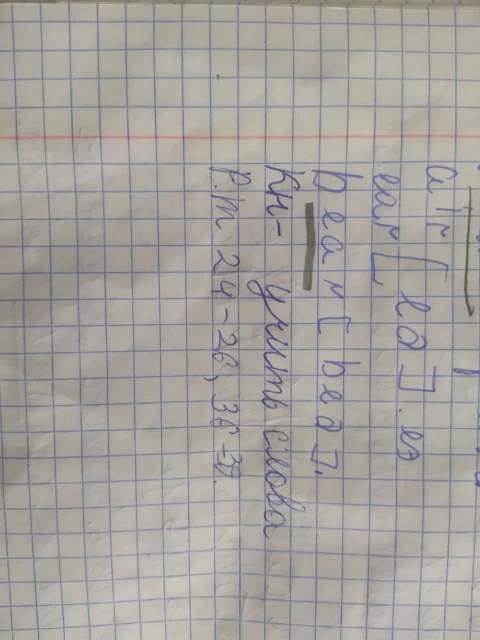 air
ear [eə]. еэ
bear [beə].
Кн- учить слова
Р.т 24-26, 36-37.